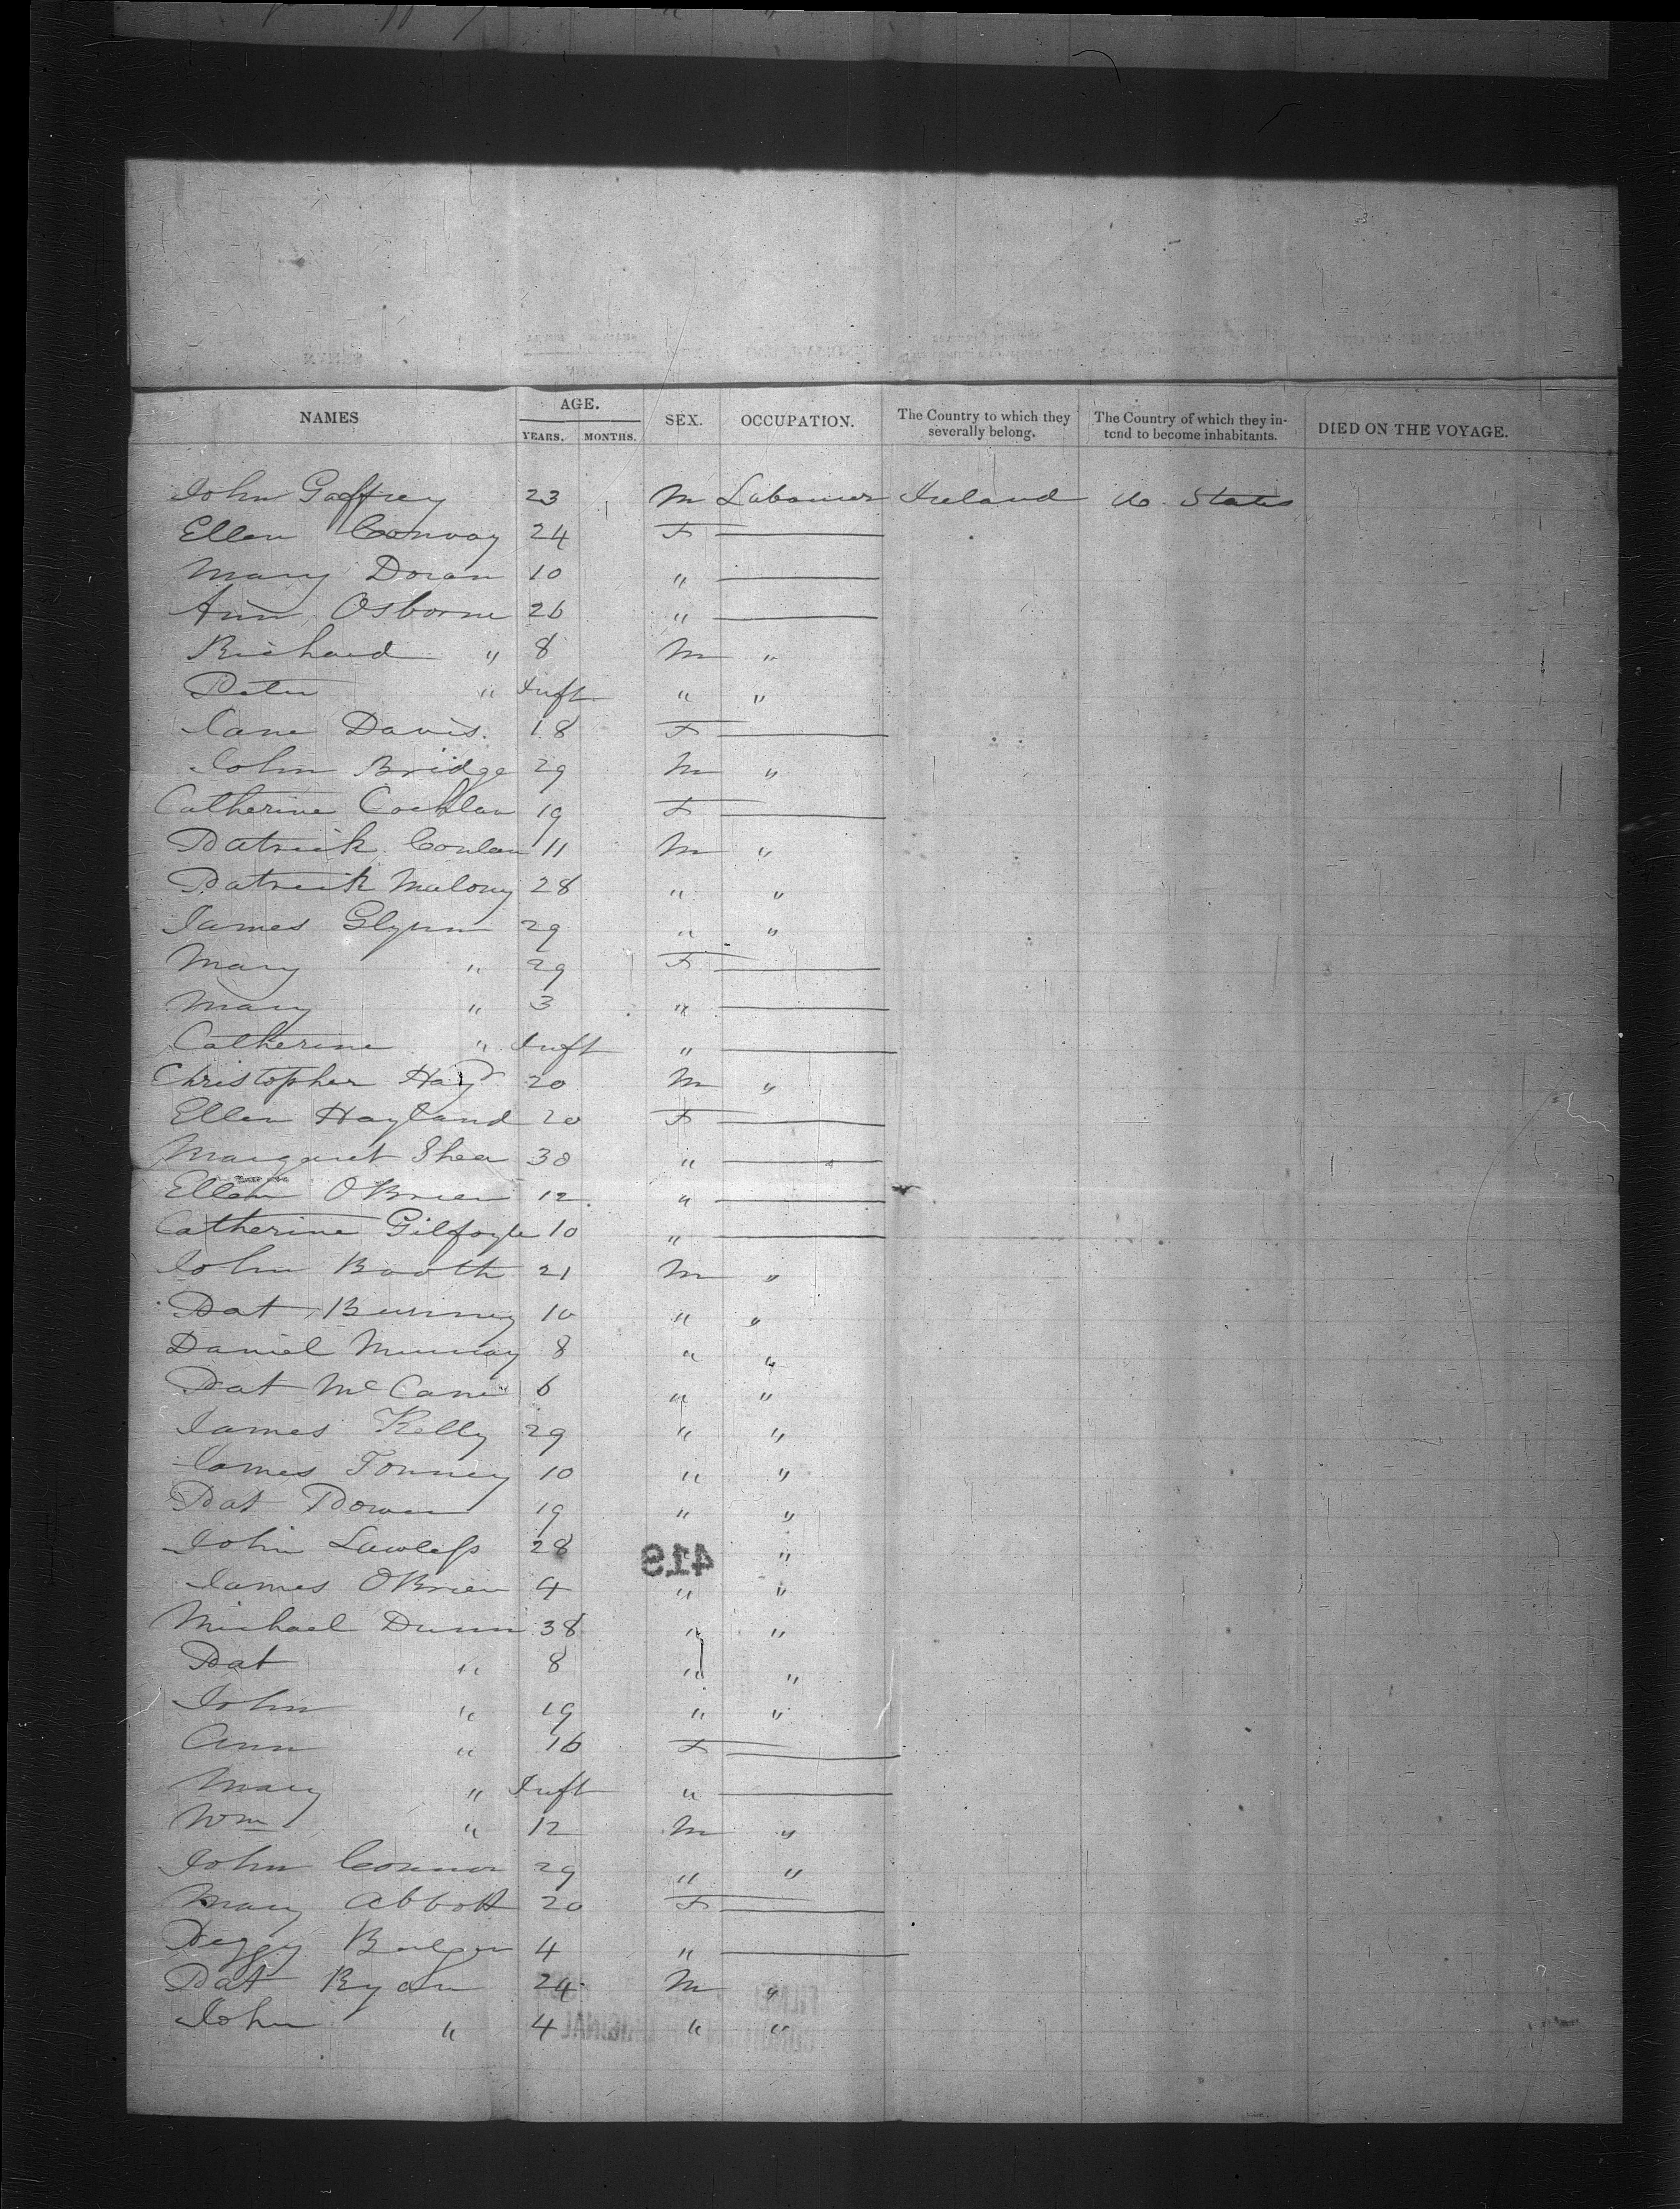 NAMES AGE. YEARS. MONTHS. SEX. OCCUPATION. The Country to which they severally belong. The Country of which they in-tend to become inhabitants. DIED ON THE VOYAGE.
John Gaffrey 23 M Labourer Ireland U. States
Ellen Conway 24 F
Mary Doran 10 "
Ann Osborne 26 "
Richard " 8 M "
Peter " Inft " "
Jane Davis. 18 F
John Bridge 29 M "
Catherine Cochlan 19 F
Patrick Conlan 11 M "
Patrick Malony 28 " "
James Glynn 29 " "
Mary " 29 F
Mary " 3 "
Catherine " Inft "
Christopher Hay 20 M "
Ellen Hayland 20 F
Margaret Shea 30 "
Ellen O'Brien 12 "
Catherine Gilfoyle 10 "
John Booth 21 M "
Pat 10 " "
Daniel Murray 8 " "
Pat McCane 6 " "
James Kelly 29 " "
James Tonney 10 " "
Pat 19 " "
John Lawless 28 "
419
James O'Brien 4 " "
Michael Dunn 38 " "
Pat " 8 " "
John " 19 " "
Ann " 16 F
Mary " Inft "
Wm " 12 M "
John Connor 29 " "
Mary Abbott 20 F
Peggy Bulger 4 "
Pat Ryan 24 M "
John " 4 " "